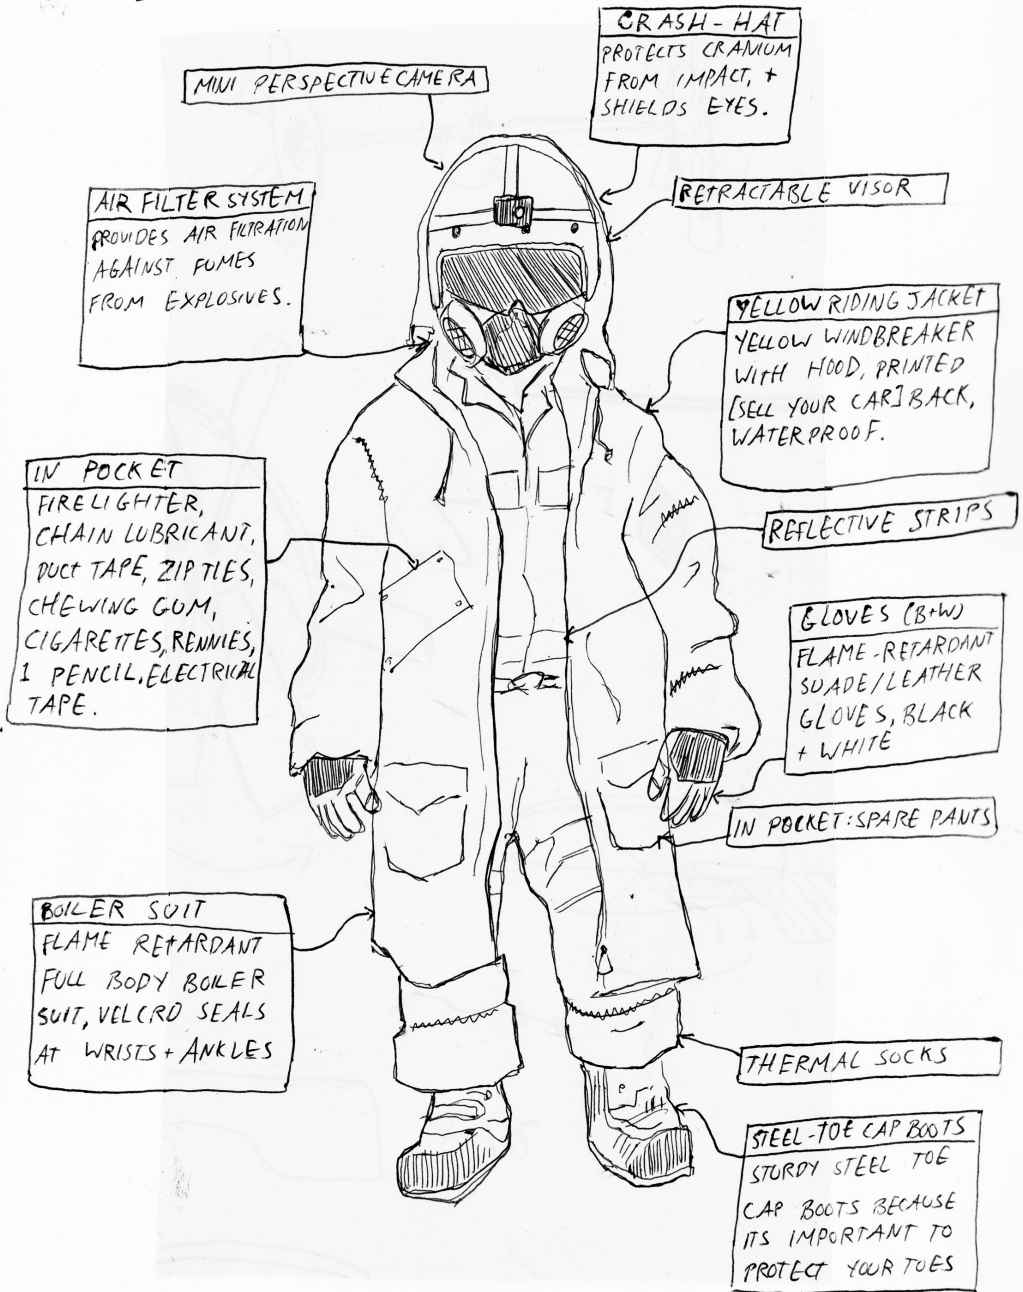 CRASH-HAT
PROTECTS CRANIUM
FROM IMPACT, +
SHIELDS EYES.
MINI PERSPECTIVE CAMERA
RETRACTABLE VISOR
AIR FILTER SYSTEM
PROVIDES AIR FILTRATION
AGAINST FUMES
FROM EXPLOSIVES.
YELLOW RIDING JACKET
YELLOW WINDBREAKER
WITH HOOD, PRINTED
[SELL YOUR CAR] BACK,
WATERPROOF.
IN POCKET
FIRELIGHTER,
CHAIN LUBRICANT,
DUCT TAPE, ZIP TIES,
CHEWING GUM,
CIGARETTES, RENNIES,
1 PENCIL, ELECTRICAL
TAPE.
REFLECTIVE STRIPS
GLOVES (B+W)
FLAME-RETARDANT
SUADE/LEATHER
GLOVES, BLACK
+ WHITE
IN POCKET: SPARE PANTS
BOILER SUIT
FLAME RETARDANT
FULL BODY BOILER
SUIT, VELCRO SEALS
AT WRISTS + ANKLES
THERMAL SOCKS
STEEL-TOE CAP BOOTS
STURDY STEEL TOE
CAP BOOTS BECAUSE
ITS IMPORTANT TO
PROTECT YOUR TOES